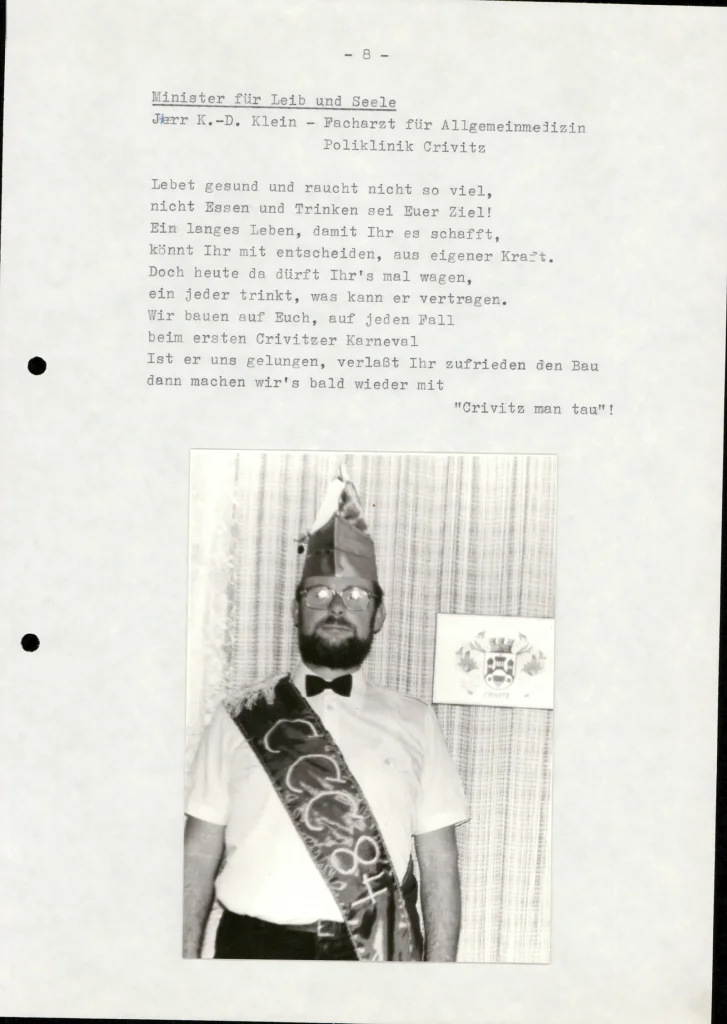 - 8 -
Minister für Leib und Seele
Herr K.-D. Klein - Facharzt für Allgemeinmedizin
Poliklinik Crivitz
Lebet gesund und raucht nicht so viel,
nicht Essen und Trinken sei Euer Ziel!
Ein langes Leben, damit Ihr es schafft,
könnt Ihr mit entscheiden, aus eigener Kraft.
Doch heute da dürft Ihr's mal wagen,
ein jeder trinkt, was kann er vertragen.
Wir bauen auf Euch, auf jeden Fall
beim ersten Crivitzer Karneval
Ist er uns gelungen, verlaßt Ihr zufrieden den Bau
dann machen wir's bald wieder mit
"Crivitz man tau"!
CRIVITZ
CCC 84